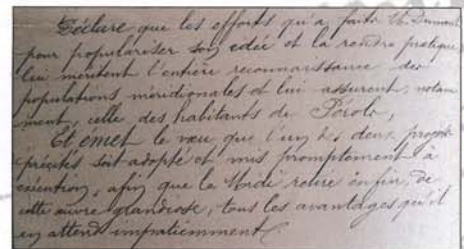 Déclare que les efforts qu'a faits M. Dumont
pour populariser son idée et la rendre pratique,
lui méritent l'entière reconnaissance des
populations méridionales et lui assurent, notam
ment, celle des habitants de Pérols,
Et émet le vœu que l'un des deux projets
précités soit adopté et mis promptement à
exécution, afin que le Midi retire enfin, de
cette œuvre grandiose, tous les avantages qu'il
en attend impatiemment